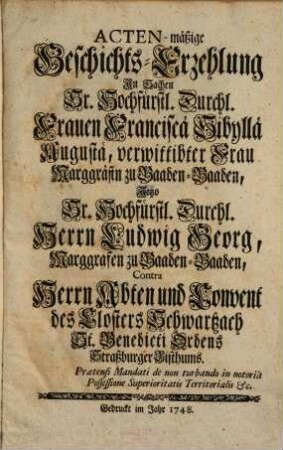 ACTEN-mäßige
Geschichts-Erzehlung
In Sachen
Sr. Hochfürstl. Durchl.
Frauen Franciscä Sibyllä
Augustä, verwittibter Frau
Marggräfin zu Baaden-Baaden,
Jetzo
Sr. Hochfürstl. Durchl.
Herrn Ludwig Georg,
Marggrafen zu Baaden-Baaden,
Contra
Herrn Abten und Convent
des Closters Schwartzach
St. Benedicti Ordens
Straßburger Bisthums.
Prætensi Mandati de non turbando in notoriâ
Possessione Superioritatis Territorialis &c.
Gedruckt im Jahr 1748.